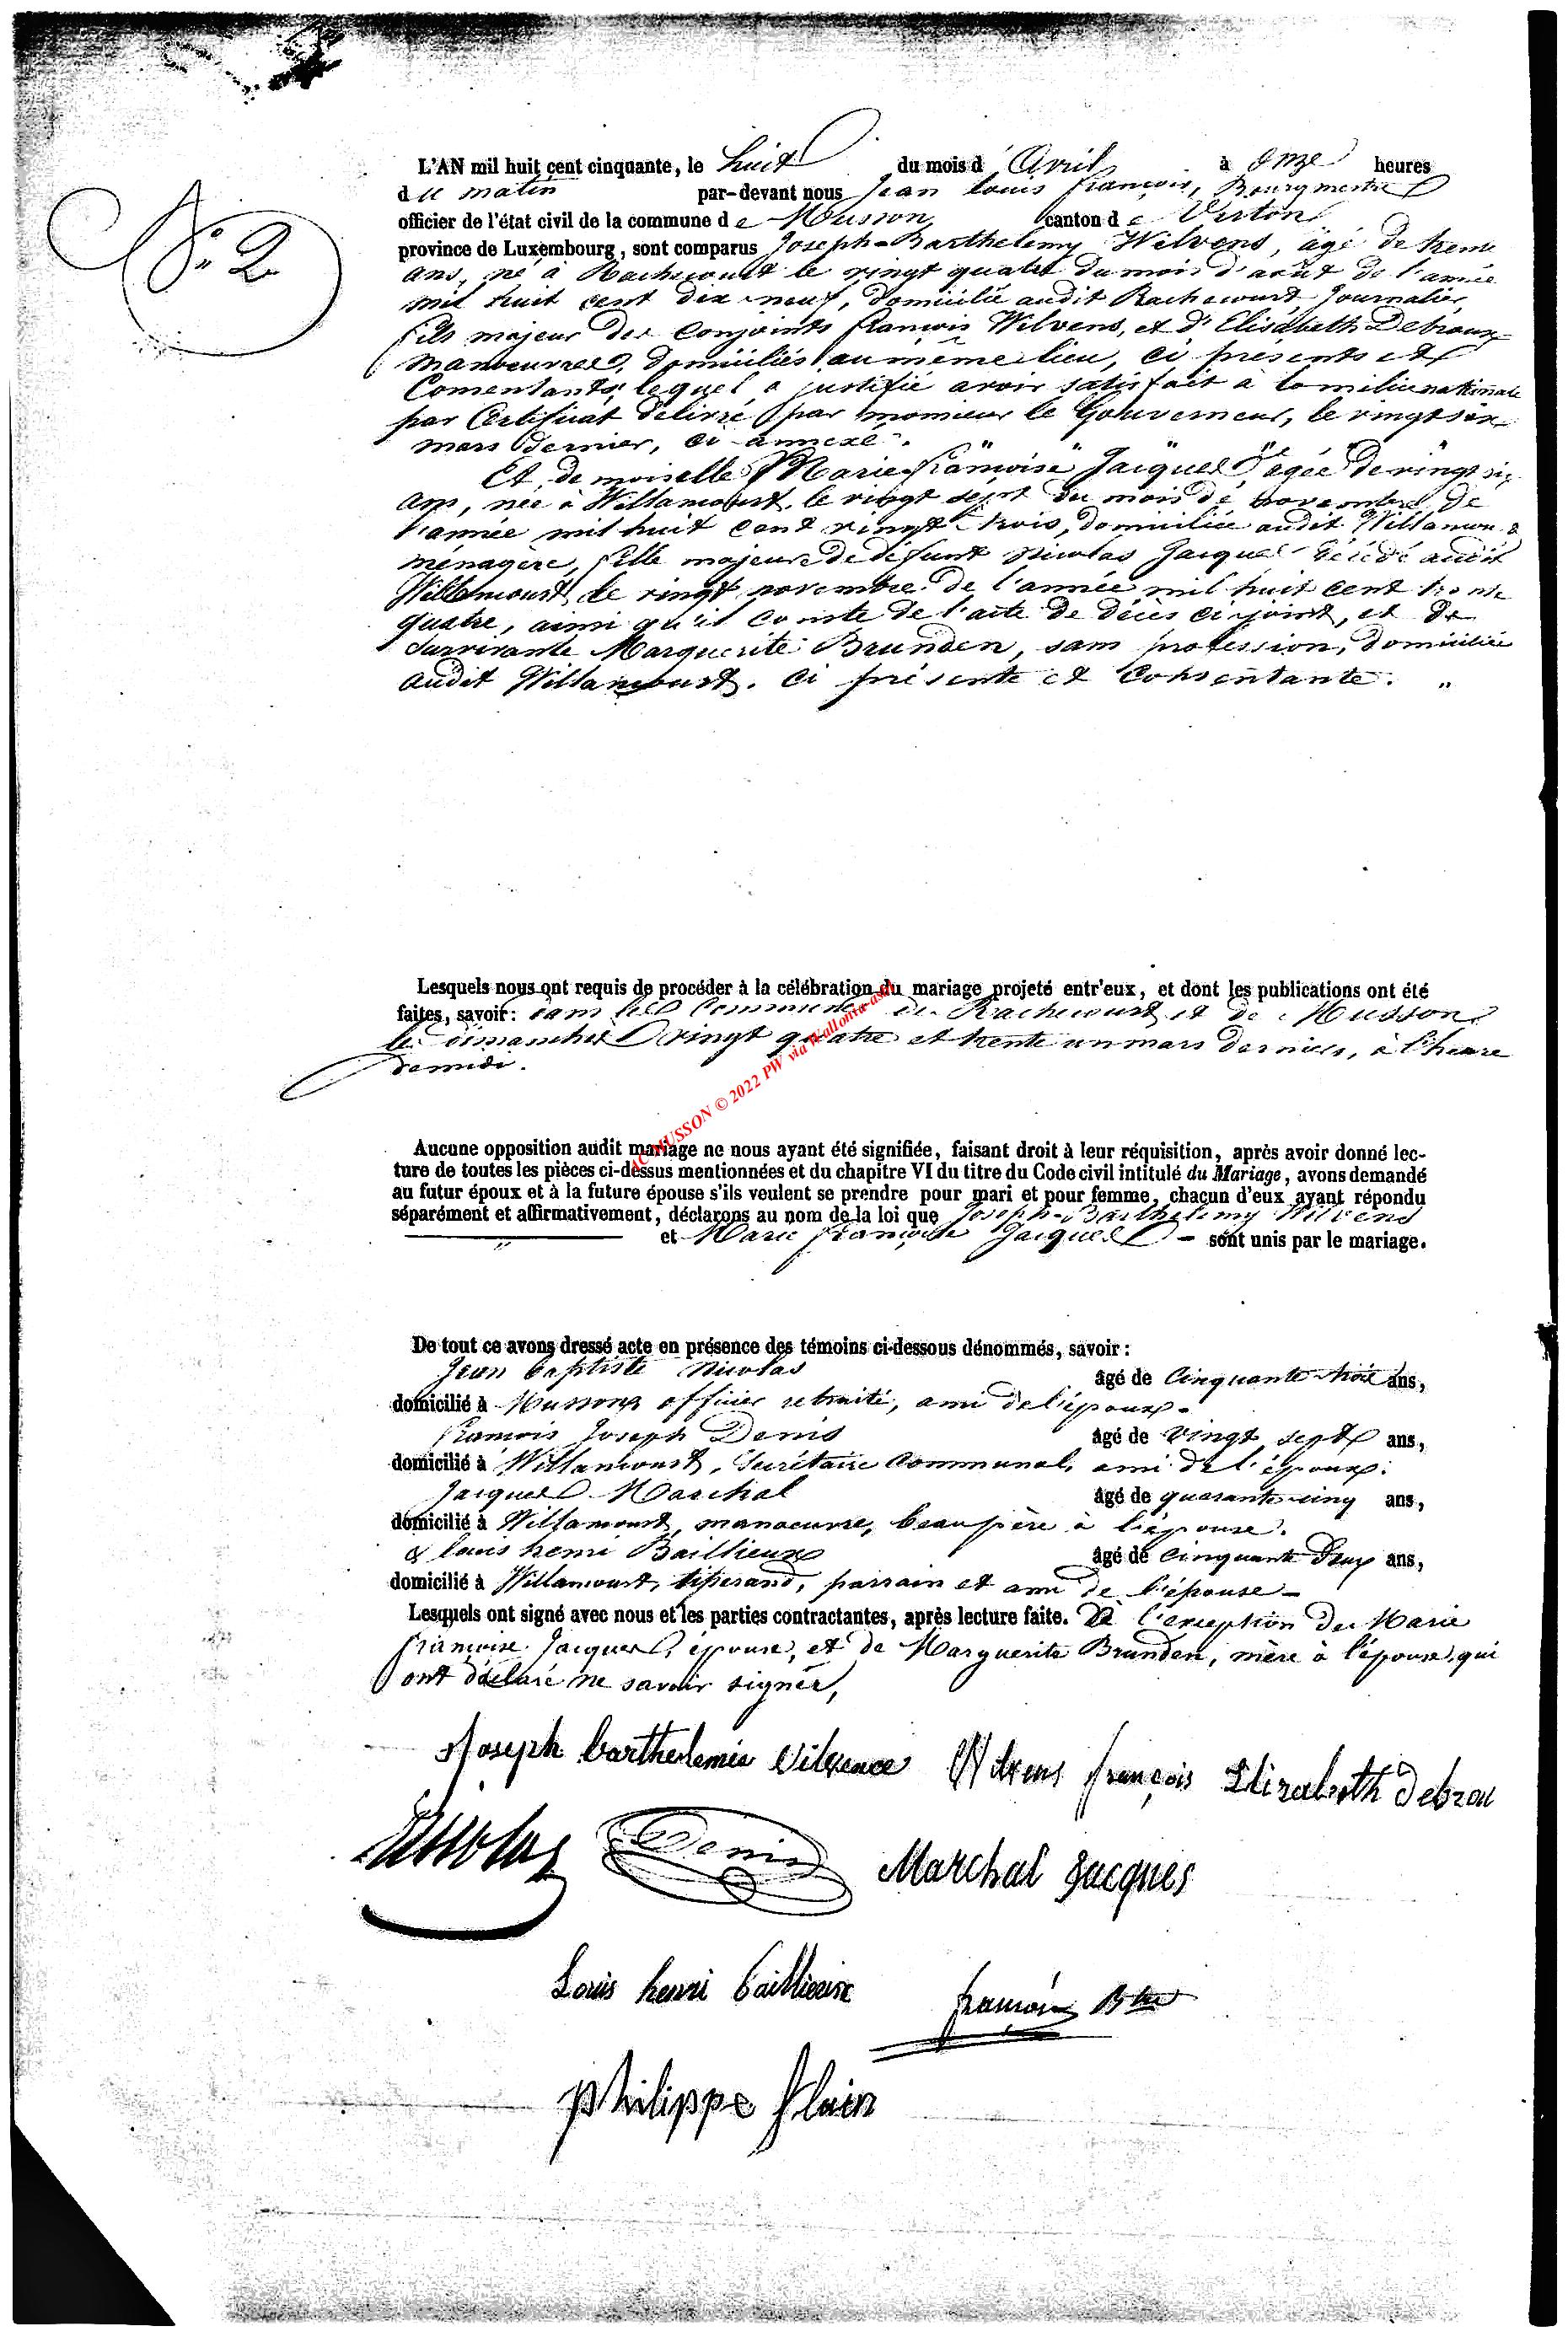 N.° 2
L'AN mil huit cent cinquante, le huit du mois d'Avril à onze heures
du matin par-devant nous Jean Louis François, Bourgmestre
officier de l'état civil de la commune de Musson, canton de Virton
province de Luxembourg, sont comparus Joseph-Barthelemy Wilvens, âgé de trente
ans, né à Rachecourt le vingt quatre du mois d'août de l'année
mil huit cent dix neuf, domicilié audit Rachecourt, Journalier,
fils majeur des conjoints françois Wilvens, et d'Elisabeth Debroux
manoeuvres, domiciliés au même lieu, ci présents et
Consentants, lequel a justifié avoir satisfait à la milice nationale
par Certificat délivré par monsieur le Gouverneur, le vingt six
mars dernier, ci-annexé.
Et demoiselle Marie-françoise Jacques, agée de vingt six
ans, née à Willancourt, le vingt sept du mois de novembre de
l'année mil huit cent vingt trois, domiciliée audit Willancourt
ménagère, fille majeure de défunt Nicolas Jacques décédé audit
Willancourt le vingt novembre de l'année mil huit cent trente
quatre, ainsi qu'il conste de l'acte de décès ci joint, et de
survivante Marguerite Brunden, sans profession, domiciliée
audit Willancourt. ci présente et consentante. "
Lesquels nous ont requis de procéder à la célébration du mariage projeté entr'eux, et dont les publications ont été
faites, savoir: dans les Communes de Rachecourt et de Musson
les dimanches vingt quatre et trente un mars derniers, à l'heure
de midi.
AC MUSSON © 2022 PW via Wallonia-asbl
Aucune opposition audit mariage ne nous ayant été signifiée, faisant droit à leur réquisition, après avoir donné lec-
ture de toutes les pièces ci-dessus mentionnées et du chapitre VI du titre du Code civil intitulé du Mariage, avons demandé
au futur époux et à la future épouse s'ils veulent se prendre pour mari et pour femme, chacun d'eux ayant répondu
séparément et affirmativement, déclarons au nom de la loi que Joseph-Barthelemy Wilvens
et Marie françoise Jacques - sont unis par le mariage.
De tout ce avons dressé acte en présence des témoins ci-dessous dénommés, savoir:
Jean baptiste Nicolas âgé de Cinquante trois ans,
domicilié à Musson officier retraité, ami de l'époux.
françois Joseph Denis âgé de vingt sept ans,
domicilié à Willancourt, Secrétaire Communal, ami de l'époux.
Jacques Marchal âgé de quarante cinq ans,
domicilié à Willancourt, manoeuvre, beau père à l'épouse.
& louis henri Baillieux âgé de cinquante deux ans,
domicilié à Willancourt, tisserand, parrain et ami de l'épouse -
Lesquels ont signé avec nous et les parties contractantes, après lecture faite. à l'exception de Marie
françoise Jacques, épouse, et de Marguerite Brunden, mère à l'épouse, qui
ont déclaré ne savoir signer,
Joseph barthelemie vilvence Wilvens françois Elizabeth debrou
Nicolas Denis Marchal Jacques
Louis henri baillieux françois Btre
philippe flain